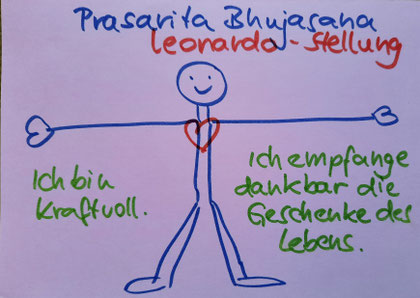 Prasarita Bhujasana
Leonardo-Stellung
Ich bin
kraftvoll.
Ich empfange
dankbar die
Geschenke des
Lebens.